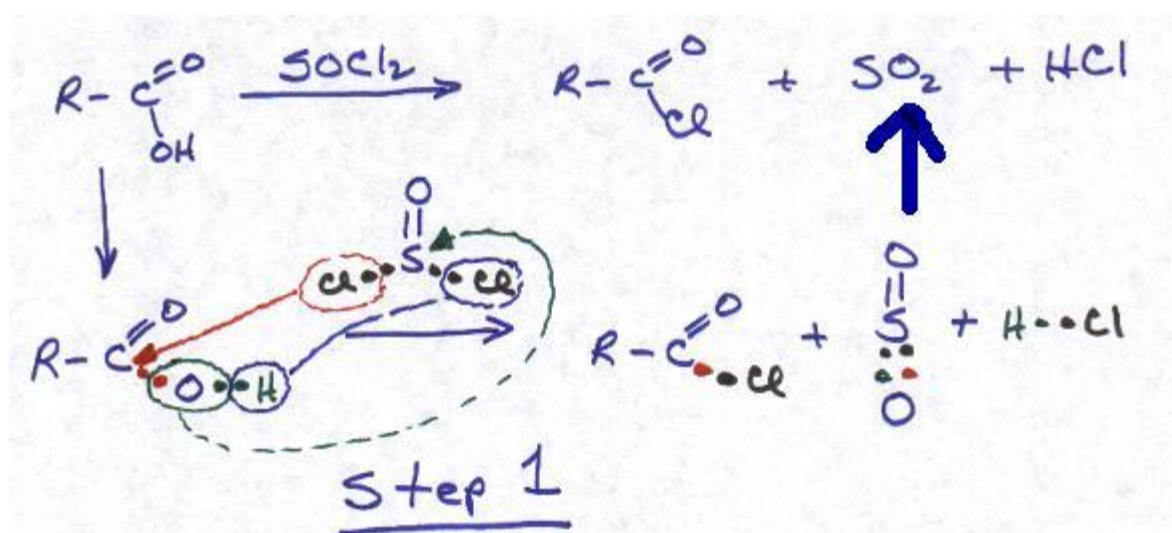 R-C=O OH SOCl2 R-C=O Cl + SO2 + HCl
O
Cl S Cl
R-C=O O H R-C=O Cl + O=S O + H Cl
Step 1